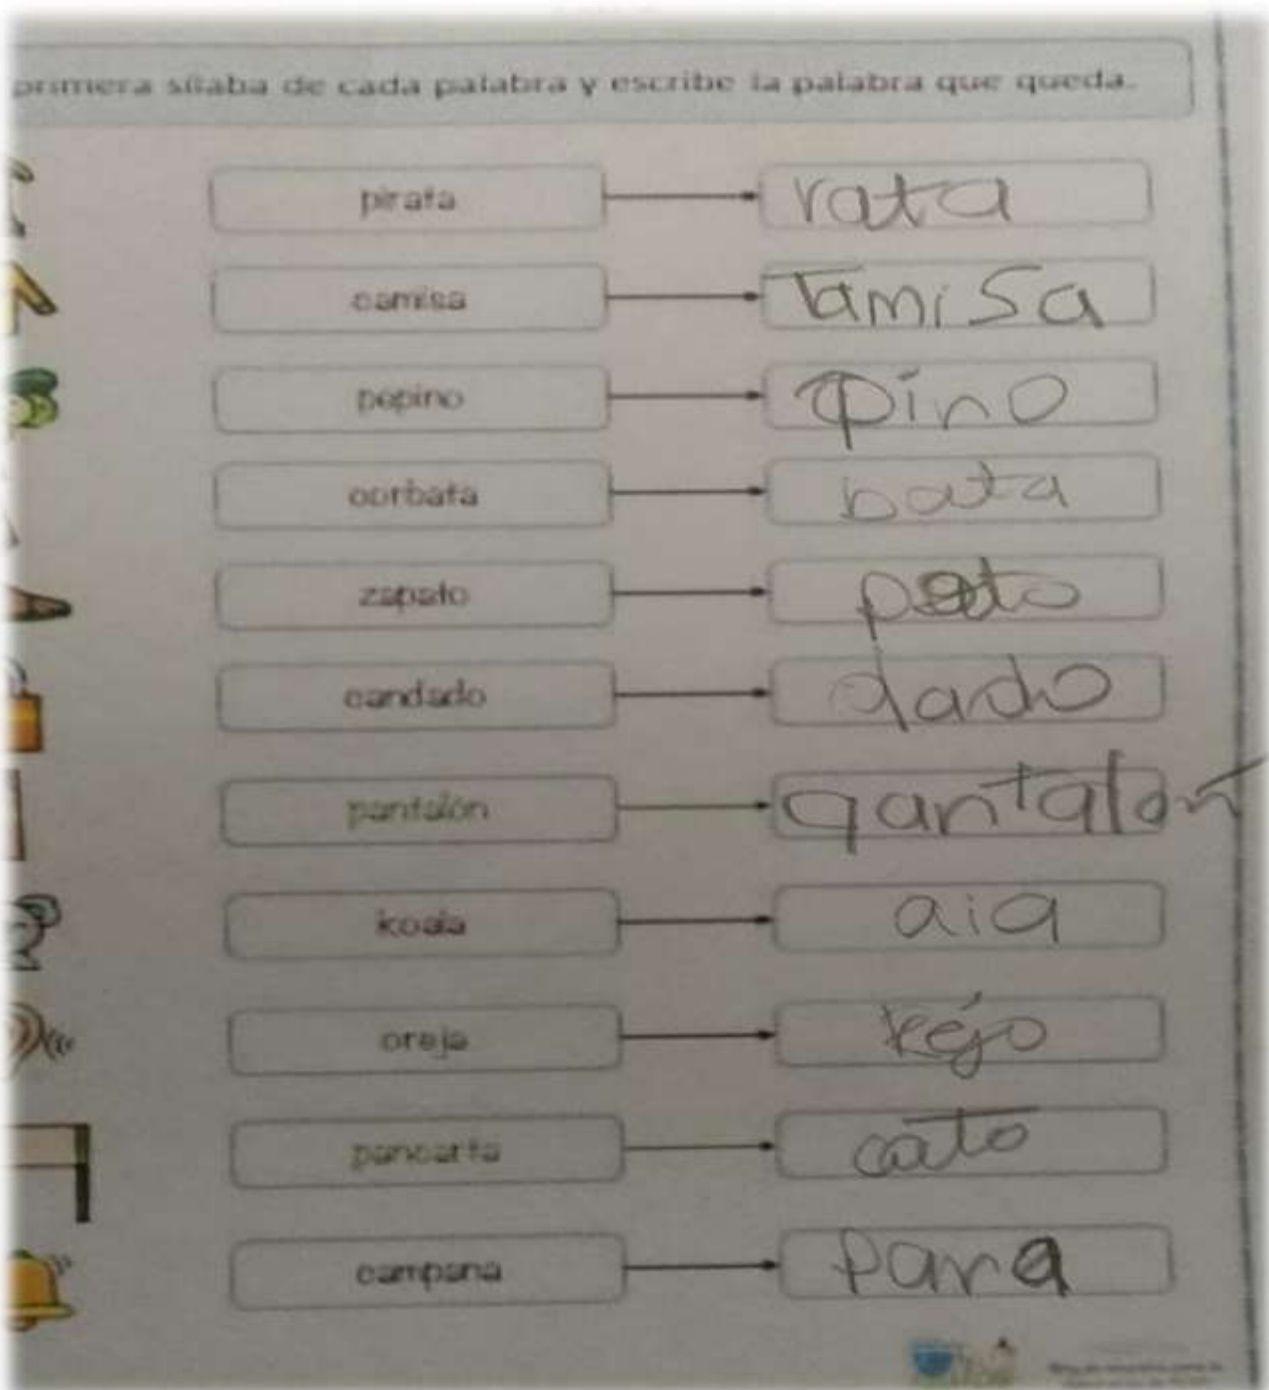 primera sílaba de cada palabra y escribe la palabra que queda.
pirata rata
camisa tamisa
pepino pino
corbata bata
zapato pato
candado dado
pantalón qantalón
koala aia
oreja kéjo
pancarta cato
campana pana